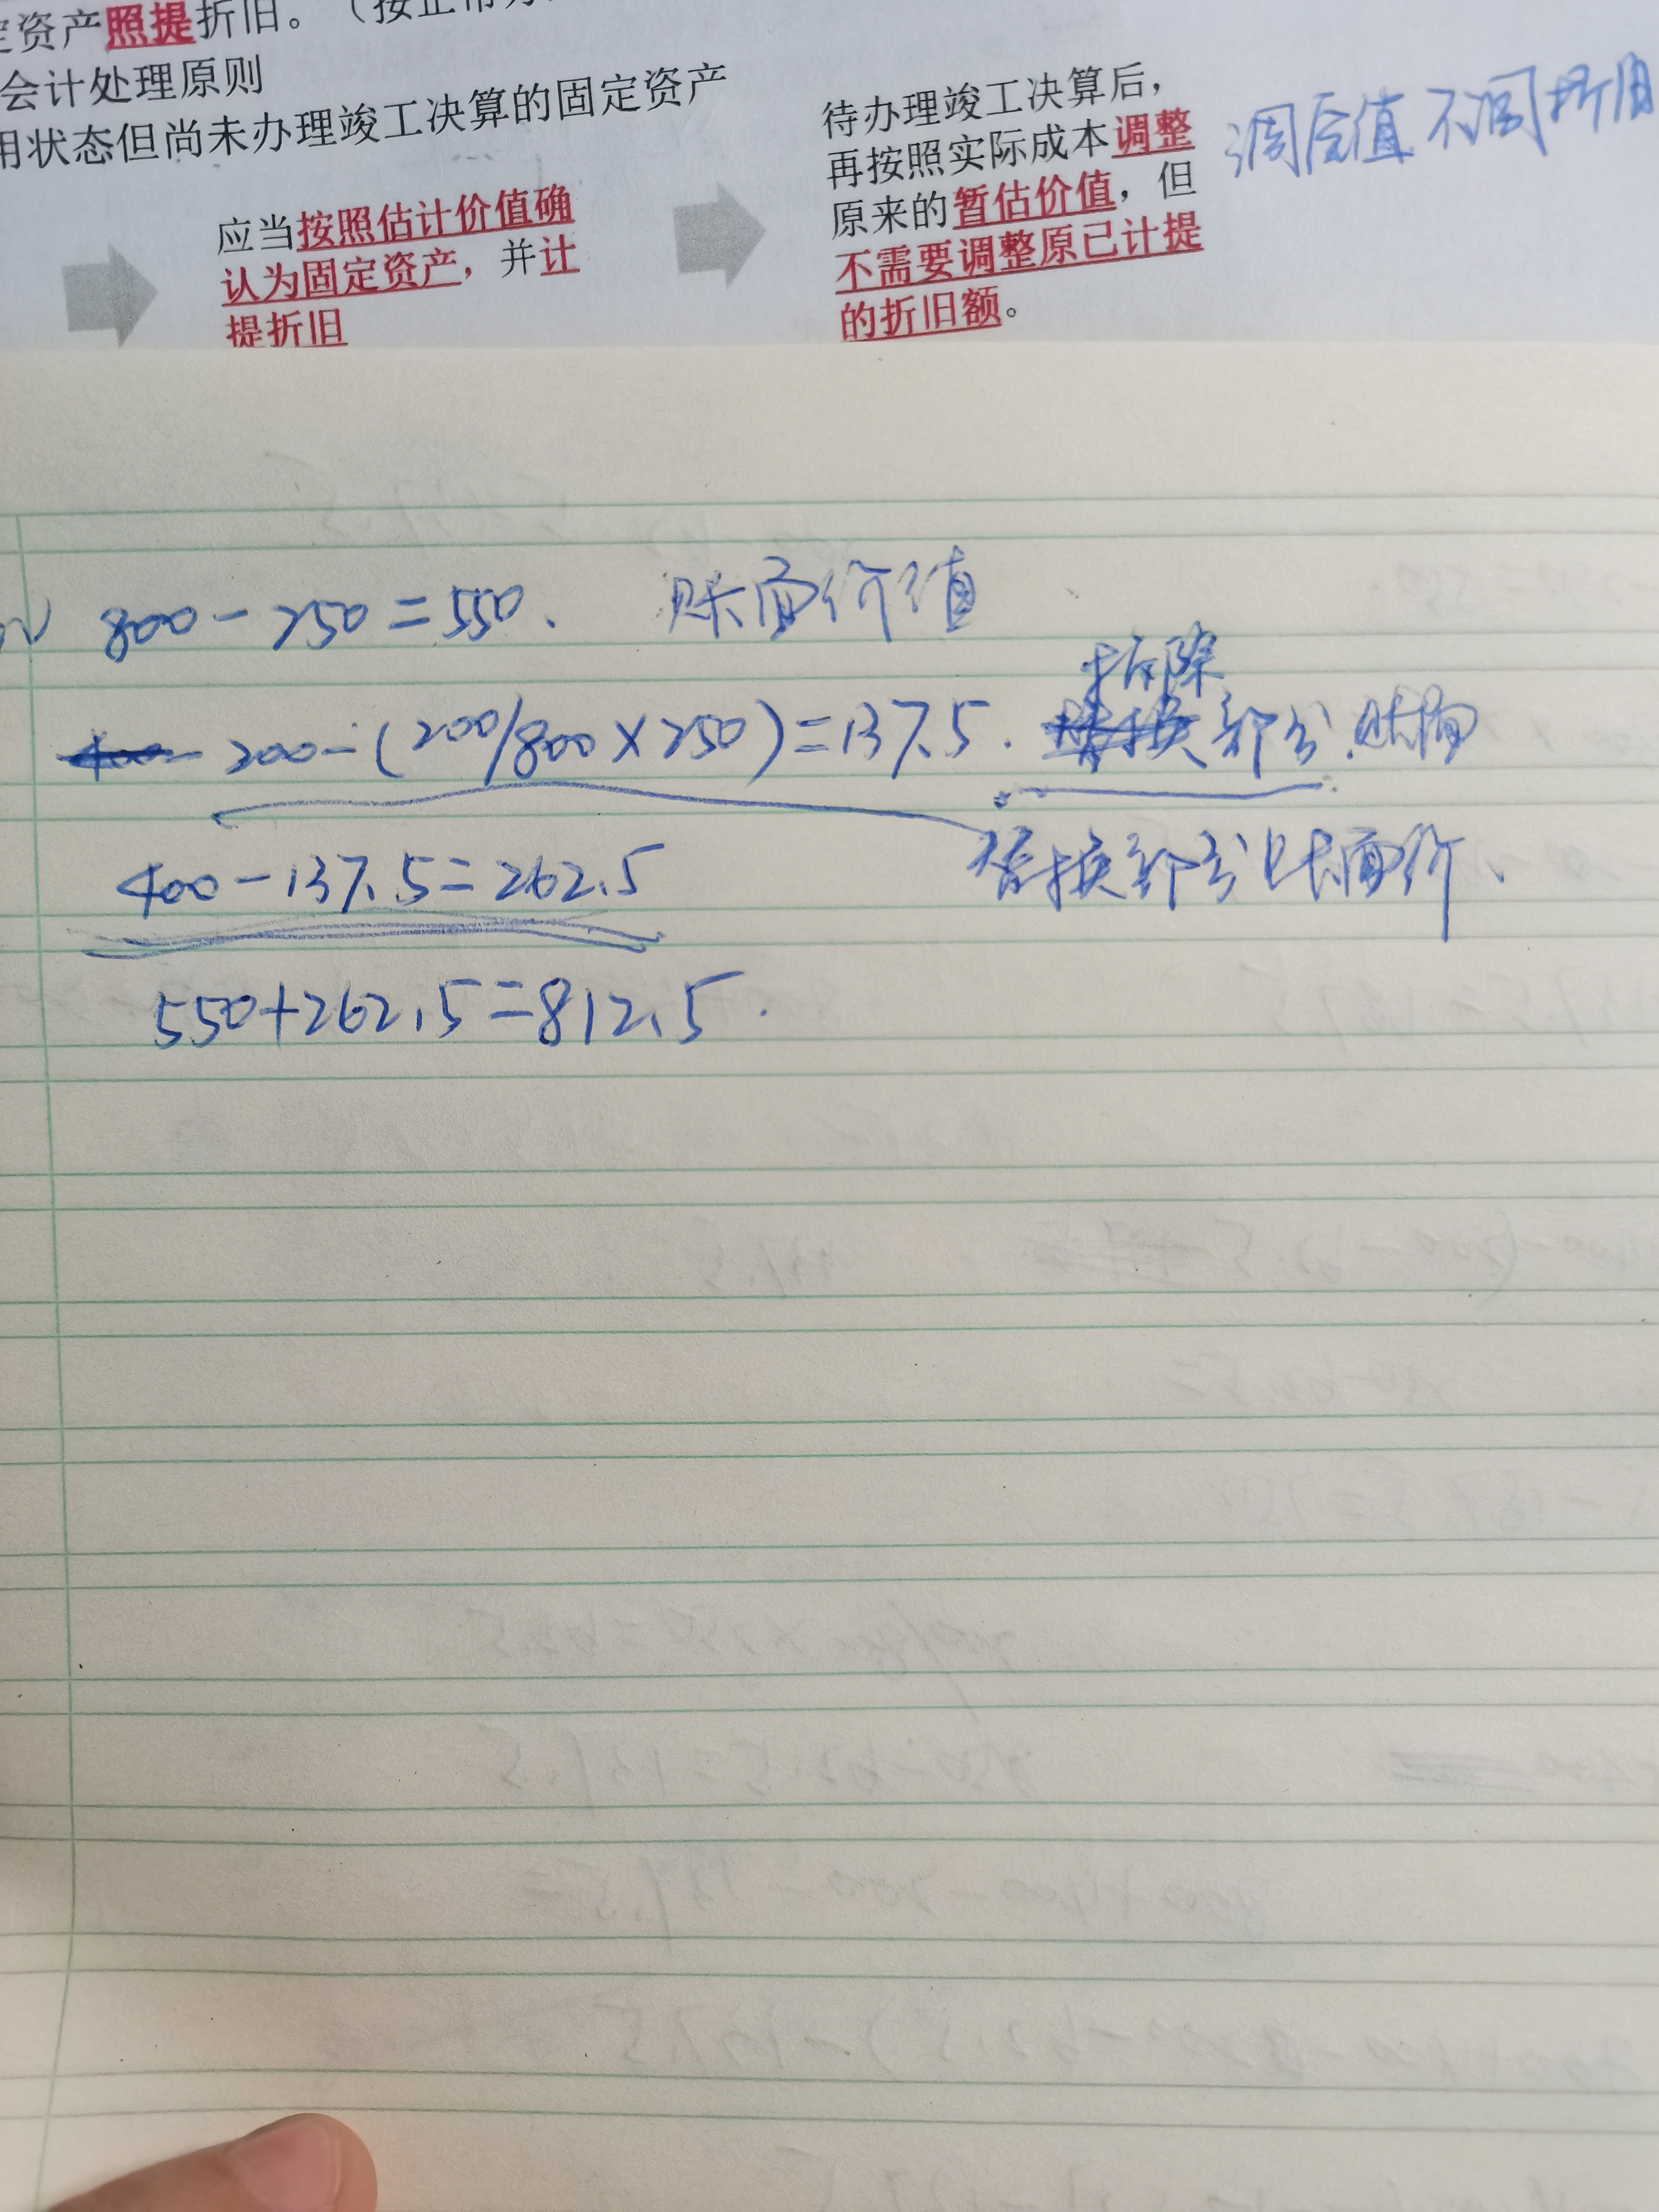 定资产照提折旧。（按正常
会计处理原则
用状态但尚未办理竣工决算的固定资产
应当按照估计价值确
认为固定资产，并计
提折旧
待办理竣工决算后，
再按照实际成本调整
原来的暂估价值，但
不需要调整原已计提
的折旧额。
调原值不调折旧
800－250＝550. 账面价值
200－(200/800×250)＝137.5. 拆除部分.账面
替换部分账面价、
400－137.5＝262.5
550+262.5＝812.5.